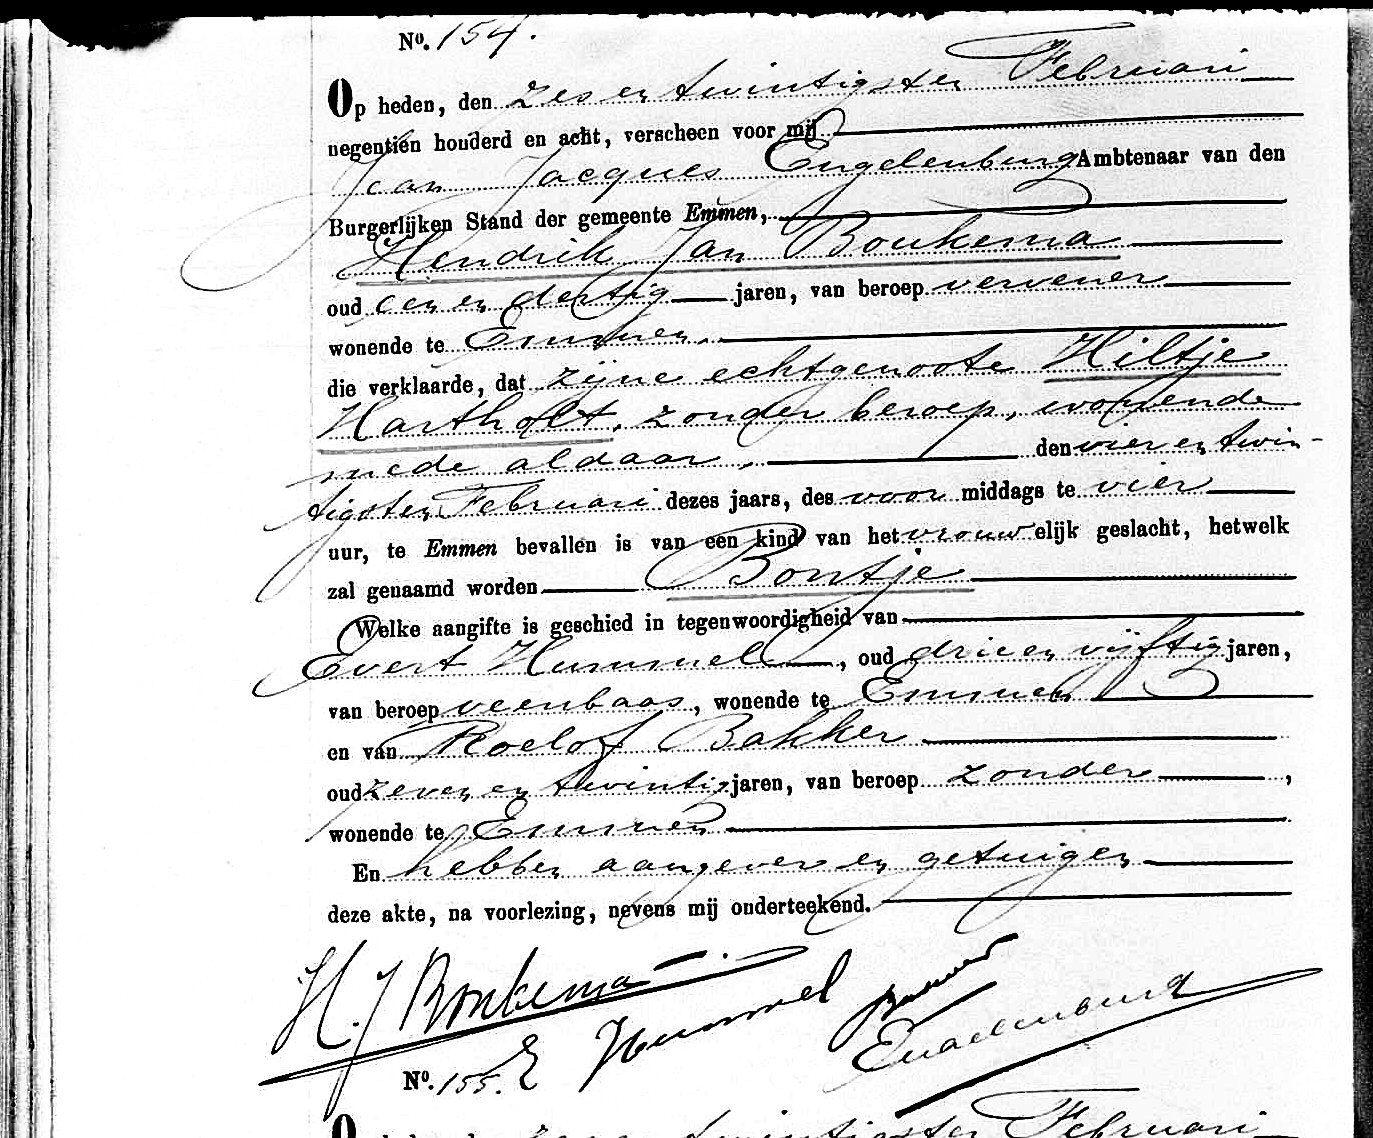 No. 154.
Op heden, den zes en twintigsten Februari
negentien honderd en acht, verscheen voor mij
Jean Jacques Engelenburg Ambtenaar van den
Burgerlijken Stand der gemeente Emmen,
Hendrik Jan Boukema
oud een en dertig jaren, van beroep vervener
wonende te Emmen.
die verklaarde, dat zijne echtgenoote Hiltje
Hartholt, zonder beroep, wonende
mede aldaar, den vier en twin-
tigsten Februari dezes jaars, des voor middags te vier
uur, te Emmen bevallen is van een kind van het vrouwelijk geslacht, hetwelk
zal genaamd worden Bontje
Welke aangifte is geschied in tegenwoordigheid van
Evert Hummel, oud drie en vijftig jaren,
van beroep veenbaas, wonende te Emmen
en van Roelof Bakker
oud zeven en twintig jaren, van beroep zonder,
wonende te Emmen
En hebben aangever en getuigen
deze akte, na voorlezing, nevens mij onderteekend.
H. J Boukema
E Hummel
Bakker
Engelenburg
No. 155.
Op heden, den zes en twintigsten Februari